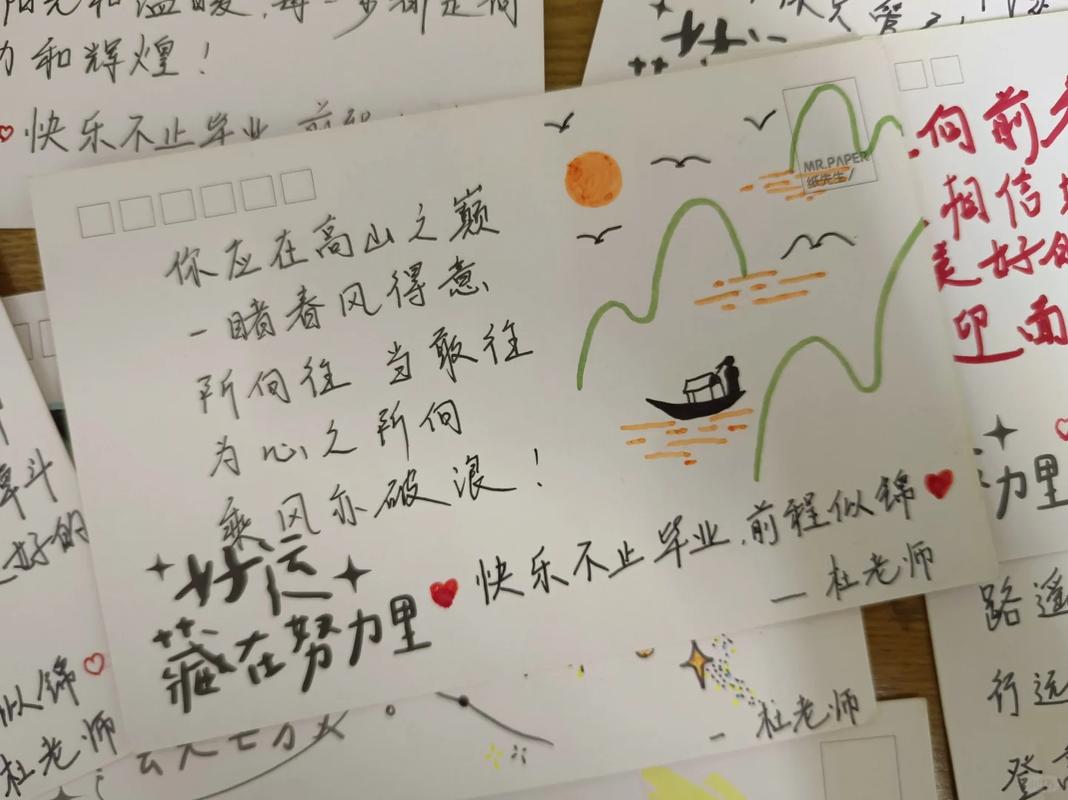 和辉煌！
快乐不止毕业
你应在高山之巅
一睹春风得意
所向往 当敢往
为心之所向
乘风亦破浪！
好运
藏在努力里
快乐不止毕业，前程似锦
— 杜老师
MR.PAPER
纸先生/
向前
相信
美好的
迎面
力里
好的
似锦
杜老师
— 杜老师
路遥
行远
登高